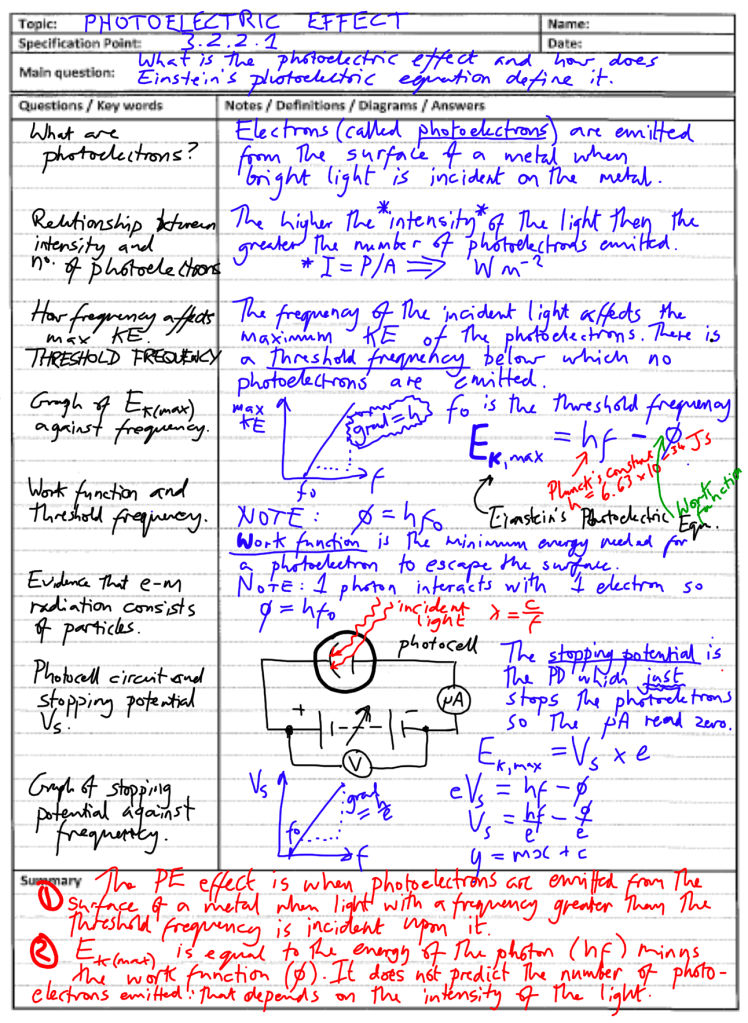 Topic: PHOTOELECTRIC EFFECT Name:
Specification Point: 3.2.2.1 Date:
Main question: What is the photoelectric effect and how does
Einstein's photoelectric equation define it.
Questions / Key words
Notes / Definitions / Diagrams / Answers
What are
photoelectrons?
Electrons (called photoelectrons) are emitted
from the surface of a metal when
bright light is incident on the metal.
Relationship between
intensity and
no. of photoelectrons
The higher the *intensity* of the light then the
greater the number of photoelectrods emitted.
* I = P/A => W m⁻²
How frequency affects
max KE.
THRESHOLD FREQUENCY
The frequency of the incident light affects the
maximum KE of the photoelectrons. There is
a threshold frequency below which no
photoelectrons are emitted.
Graph of EK(max)
against frequency.
max
KE
grad = h
f₀
f
f₀ is the threshold frequency
EK,max = hf - φ
Planck's constant
h = 6.63 x 10⁻³⁴ Js
Work
function
Einstein's Photoelectric Eqn.
Work function and
Threshold frequency.
NOTE: φ = hf₀
Work function is the minimum energy needed for
a photoelectron to escape the surface.
Evidence that e-m
radiation consists
of particles.
NOTE: 1 photon interacts with 1 electron so
φ = hf₀
incident
light
λ = c/f
Photocell circuit and
stopping potential
Vs.
photocell
+
-
μA
V
The stopping potential is
the PD which just
stops the photoelectrons
so the μA read zero.
EK,max = Vs x e
Graph of stopping
potential against
frequency.
Vs
grad
= h/e
f₀
f
eVs = hf - φ
Vs = hf/e - φ/e
y = mx + c
Summary
① The PE effect is when photoelectrons are emitted from the
surface of a metal when light with a frequency greater than the
threshold frequency is incident upon it.
② EK(max) is equal to the energy of the photon (hf) minus
the work function (φ). It does not predict the number of photo-
electrons emitted: that depends on the intensity of the light.